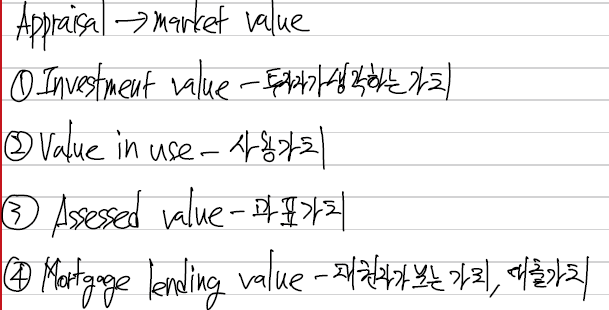 Appraisal → market value
① Investment value - 투자자가 생각하는 가치
② Value in use - 사용가치
③ Assessed value - 과표가치
④ Mortgage lending value - 채권자가 보는 가치, 대출가치